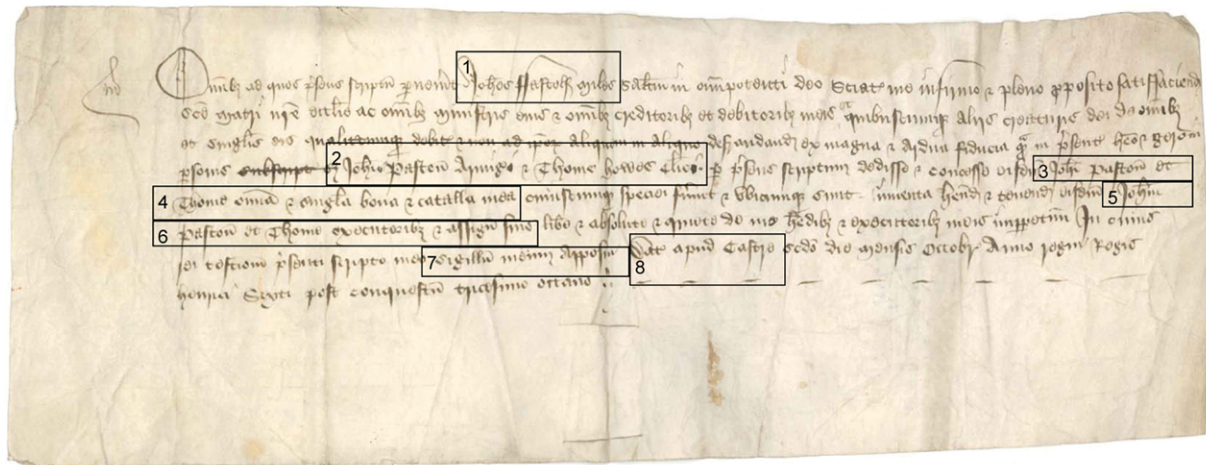 1 Omib3 ad quos p'sens scriptu p'ven'it Joh'es ffastolf miles salt'm in om'ipotenti deo Sciatis me in firmo & pleno p'posito satisfaciendi
matri n're eccl'ie ac om'ib3 ministris eius & om'ib3 creditorib3 et debitorib3 meis quibuscumq3 aliis creaturis dei de om'ib3
et singlis eis qualitercumq3 debit' & non ad ip'or' aliquam in aliquo defraudand' ex magna & ardua fiducia qua in p'sent' h'eo & gero in
p'sonis subscript' 2 Joh'i Paston Armig'o & Thome howes Cl'ico p' p'sens scriptum dedisse & concesse eisdem 3 Joh'i Paston et
4 Thome omia & singla bona & catalla mea cuiuscumq3 speciei fu'int & ubicumq3 inventa h'end & tenend eisdem 5 Joh'i
6 Paston et Thome executorib3 & assign suis lib'e & absolute & quiete de me h'edib3 & executorib3 meis imp'p'tuu In cuius
rei testimo p'senti scripto meo 7 sigillu meum apposui 8 Dat apud Castre s'c'do die mensis Octobr' Anno regni Regis
henrici Sexti post conquestu tricesimo octavo